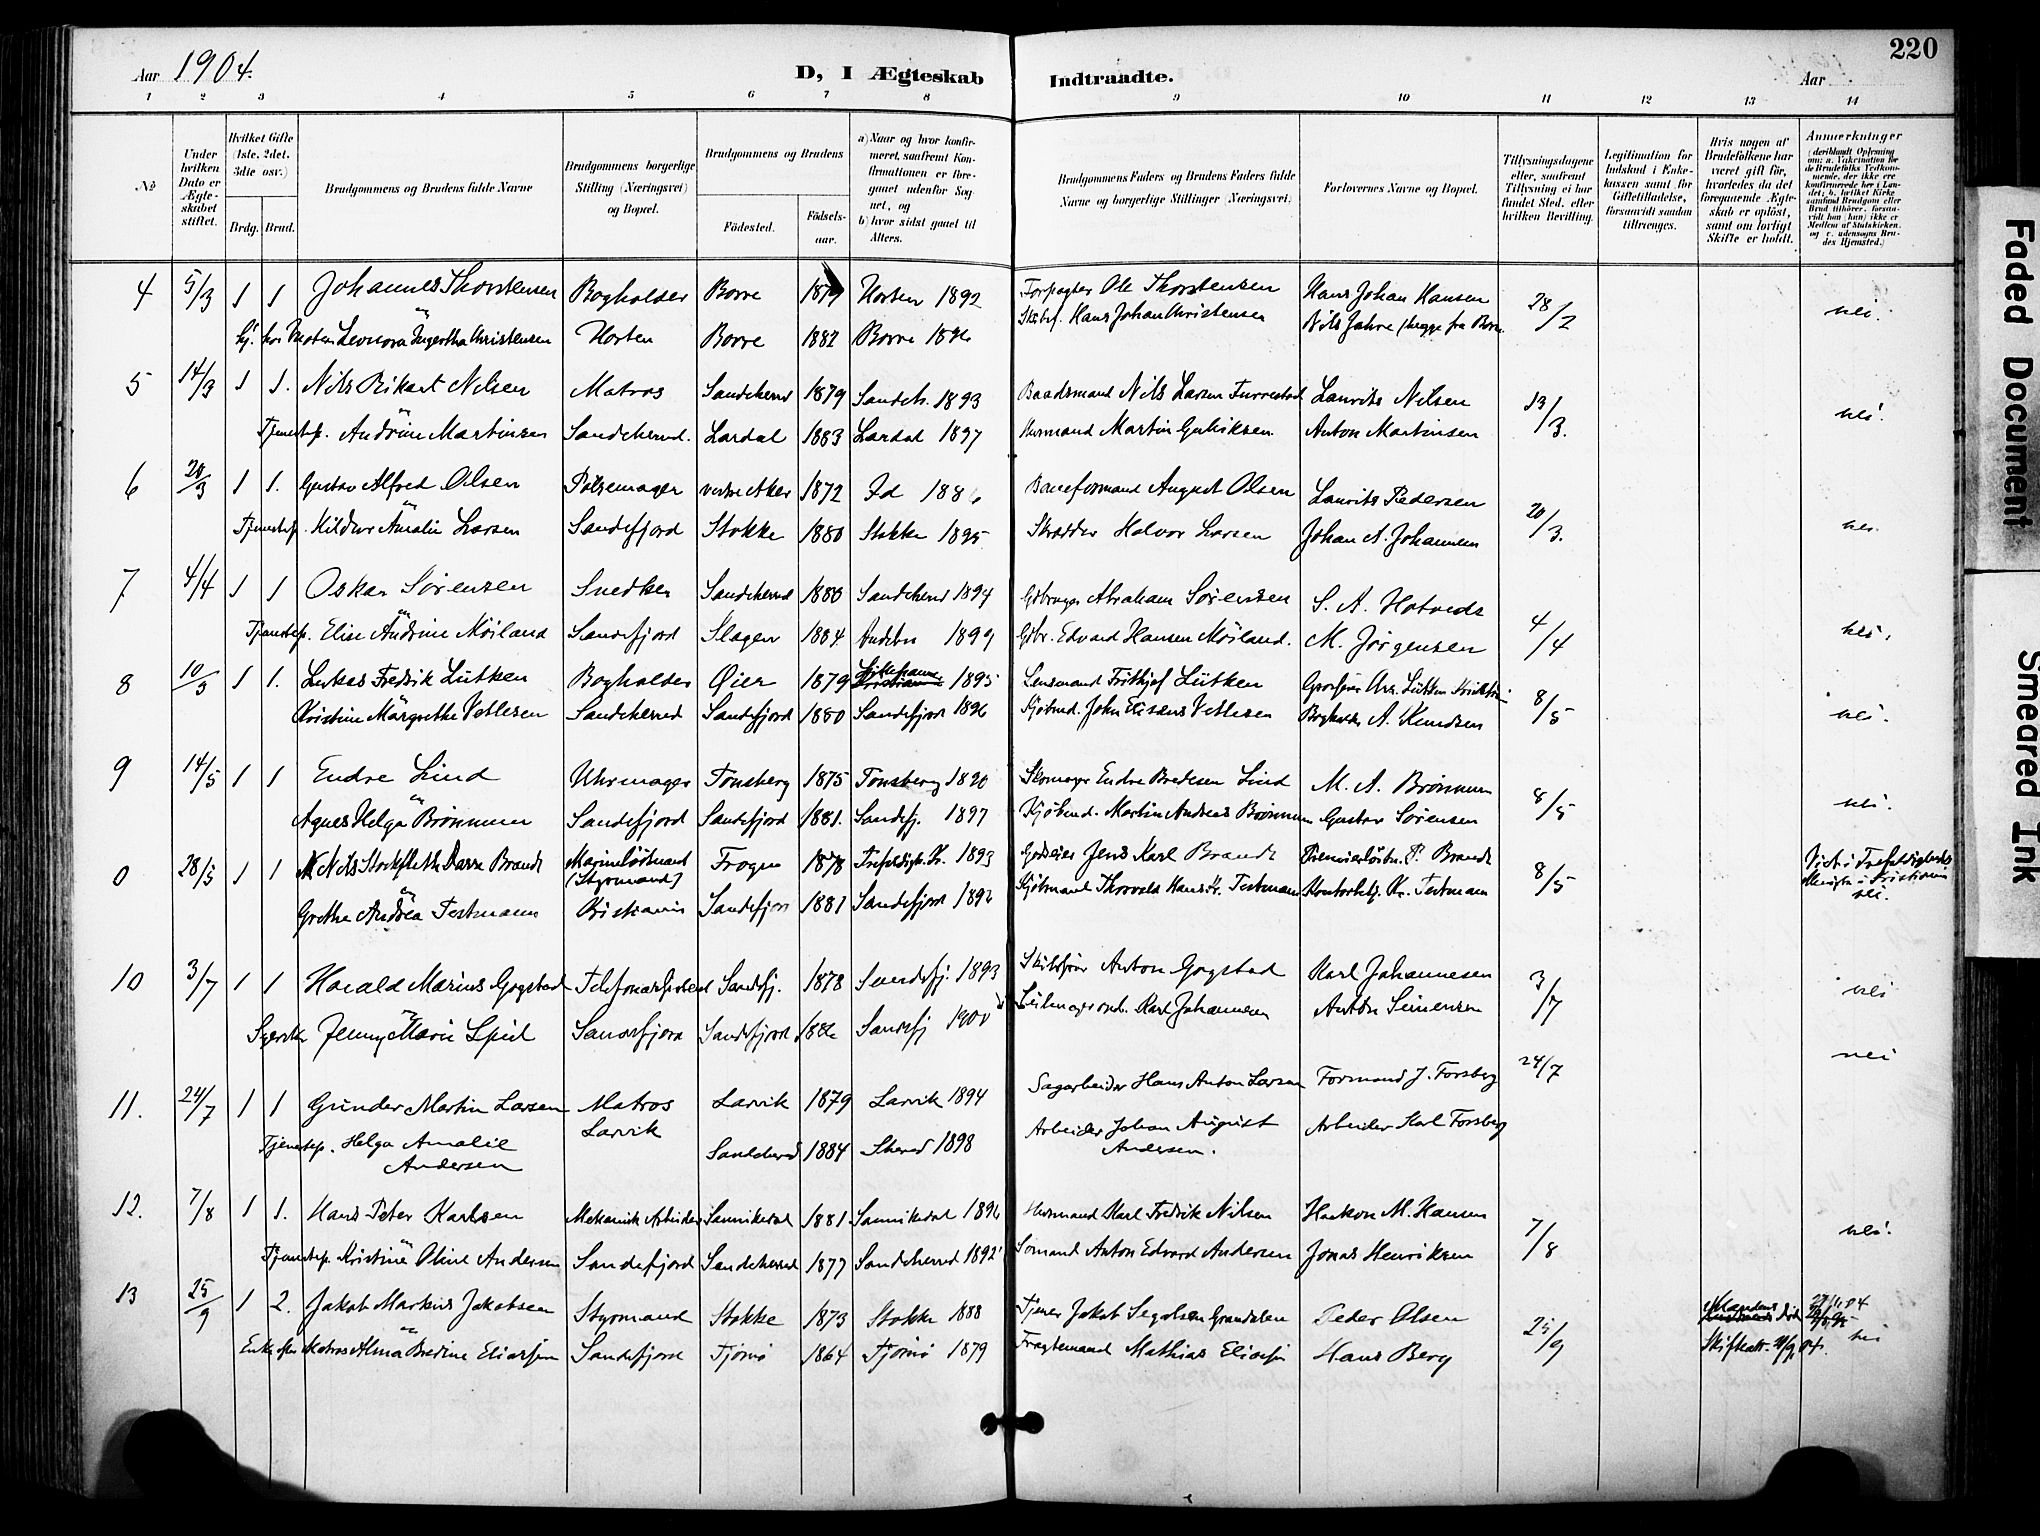 220
Aar 1904.
D, I Ægteskab Indtraadte.
Aar
1 2 3 4 5 6 7 8 9 10 11 12 13 14
No
Under hvilken Dato er Ægteskabet stiftet.
Hvilket Gifte (1ste, 2det, 3die osv.)
Brdg. Brud.
Brudgommens og Brudens fulde Navne
Brudgommens borgerlige Stilling (Næringsvei) og Bopæl.
Brudgommens og Brudens
Fødested.
Fødselsaar.
a) Naar og hvor konfirmeret, saafremt Konfirmationen er foregaaet udenfor Sognet, og
b) hvor sidst gaaet til Alters.
Brudgommens Faders og Brudens Faders fulde Navne og borgerlige Stillinger (Næringsvei)
Forlovernes Navne og Bopæl.
Tillysningsdagene eller, saafremt Tillysning ei har fundet Sted, efter hvilken Bevilling.
Legitimation for Indskud i Enkekassen samt for Giftetilladelse, forsaavidt saadan tiltrænges.
Hvis nogen af Brudefolkene har været gift før, hvorledes da det foregaaende Ægteskab er opløst, samt om lovligt Skifte er holdt.
Anmærkninger
4 5/3 1 1 Johannes Thorstensen Bogholder Borre 1879 Horten 1892 Forpagter Ole Thorstensen Hans Johan Hansen 28/2 nei.
Leonora Ingertha Christensen Horten Borre 1882 Borre 1896 Hans Johan Christensen Nils Jahre (begge fra Borre
5 14/3 1 1. Nils Rikart Nilsen Matros Sandeherred 1879 Sandeh. 1893 Baadsmand Nils Larsen Furrestad Laurits Nilsen 13/3. nei.
Tjenestep. Andrine Martinsen Sandeherred. Lardal 1883 Lardal 1897 Husmand Martin Guliksen Anton Martinsen
6 20/3 1 1. Gustav Alfred Olsen Pølsemager vestre Aker 1872 Id 1886 Baneformand August Olsen Laurits Pedersen 20/3. nei.
Tjenestep. Hildur Amalie Larsen Sandefjord Stokke 1880 Stokke 1895 Skrædder Halvor Larsen Johan A. Johannesen
7 4/4 1 1 Oskar Sørensen Snedker Sandeherred 1880 Sandeherred 1894 Gdbruger Abraham Sørensen S. A. Hotvedt 4/4 nei.
Tjenestep. Elise Andrine Møiland Sandefjord Slagen 1884. Andebu 1899 Gbr. Edvard Hansen Møiland. M. Jørgensen
8 10/5 1 1. Lukas Fredrik Lütken Bogholder Øier 1879 Lillehammer 1895 Lensmand Fridtjof Lütken 8/5 nei.
Kristine Margrethe Vetlesen Sandeherred Sandefjord 1880 Sandefjord 1896 Kjøbmd. John Elisæus Vetlesen Bogholder A. Knudsen
9 14/5 1 1 Endre Lind Uhrmager Tønsberg 1875 Tønsberg 1890 Skomager Endre Bredesen Lind M. A. Brønnum 8/5 nei.
Agnes Helga Brønnum Sandefjord Sandefjord 1881. Sandefj. 1897 Kjøbmd. Martin Andreas Brønnum Gustav Sørensen
0 28/5 1 1 Nils Stockfleth Darre Brandt Marineløitnant (Styrmand) Frogn 1878 Trefoldigh. K. 1893 Godseier Jens Karl Brandt Premierløitn. P. Brandt 8/5 Viet i Trefoldigheds Menigh. i Kristiania nei.
Grethe Andrea Testmann Kristiania Sandefjord 1881 Sandefjord 1896 Kjøbmand Thorvald Testmann Kontorbetj. K. Testmann
10 3/7 1 1 Harald Marius Gogstad Sandefj. 1878 Sandefj. 1893 Skibsfører Anton Gogstad Karl Johannesen 3/7 nei
Jenny Marie Sandefjord Sandefjord 1886 Sandefj 1900 Karl Johannesen Anton Simensen
11. 24/7 1 1 Gunder Martin Larsen Matros Larvik 1879 Larvik 1894 Sagarbeider Hans Anton Larsen Formand J. Forsberg 24/7 nei
Tjenestep. Helga Amalie Andersen Larvik Sandeherred 1884 Sherred 1898 Arbeider Johan August Andersen. Arbeider Karl Forsberg
12. 7/8 1 1. Hans Peter Karlsen Mekanisk Arbeider Sannikedal 1881 Sannikedal 1896 Husmand Karl Fredrik Nilsen Haakon M. Hansen 7/8 nei.
Tjenestep. Kristine Oline Andersen Sandefjord Sandeherred 1877 Sandeherred 1892 Sømand Anton Edvard Andersen Jonas Henriksen
13 25/9 1 2. Jakob Markus Jakobsen Styrmand Stokke 1873 Stokke 1888 Jakob Peder Olsen 25/9 Mandens nei
Enke efter Matros Alma Bredine Eliassen Sandefjord Tjømø 1864 Tjømø 1879 Fragtemand Mathias Eliassen Hans Berg
Faded Document
Smeared Ink